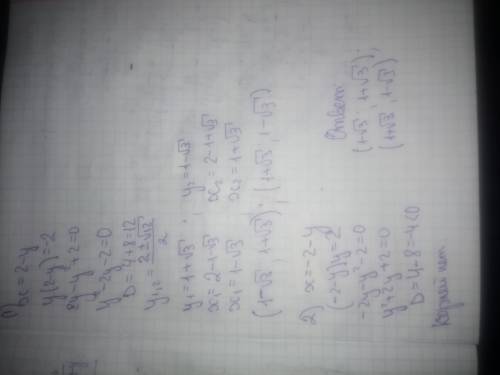 1) x = 2-y
y(2-y) = -2
2y - y² + 2 = 0
y² - 2y - 2 = 0
D = 4+8 = 12
y₁,₂ = (2 ± √12)/2
y₁ = 1+√3 ; y₂ = 1-√3
x₁ = 2-1-√3 x₂ = 2-1+√3
x₁ = 1-√3 x₂ = 1+√3
(1-√3 ; 1+√3) ; (1+√3 ; 1-√3)
2) x = -2-y
(-2-y)y = 2
-2y-y²-2=0
y²+2y+2=0
D = 4-8=-4<0
Корней нет
Ответ:
(1-√3 ; 1+√3) ;
(1+√3 ; 1-√3)